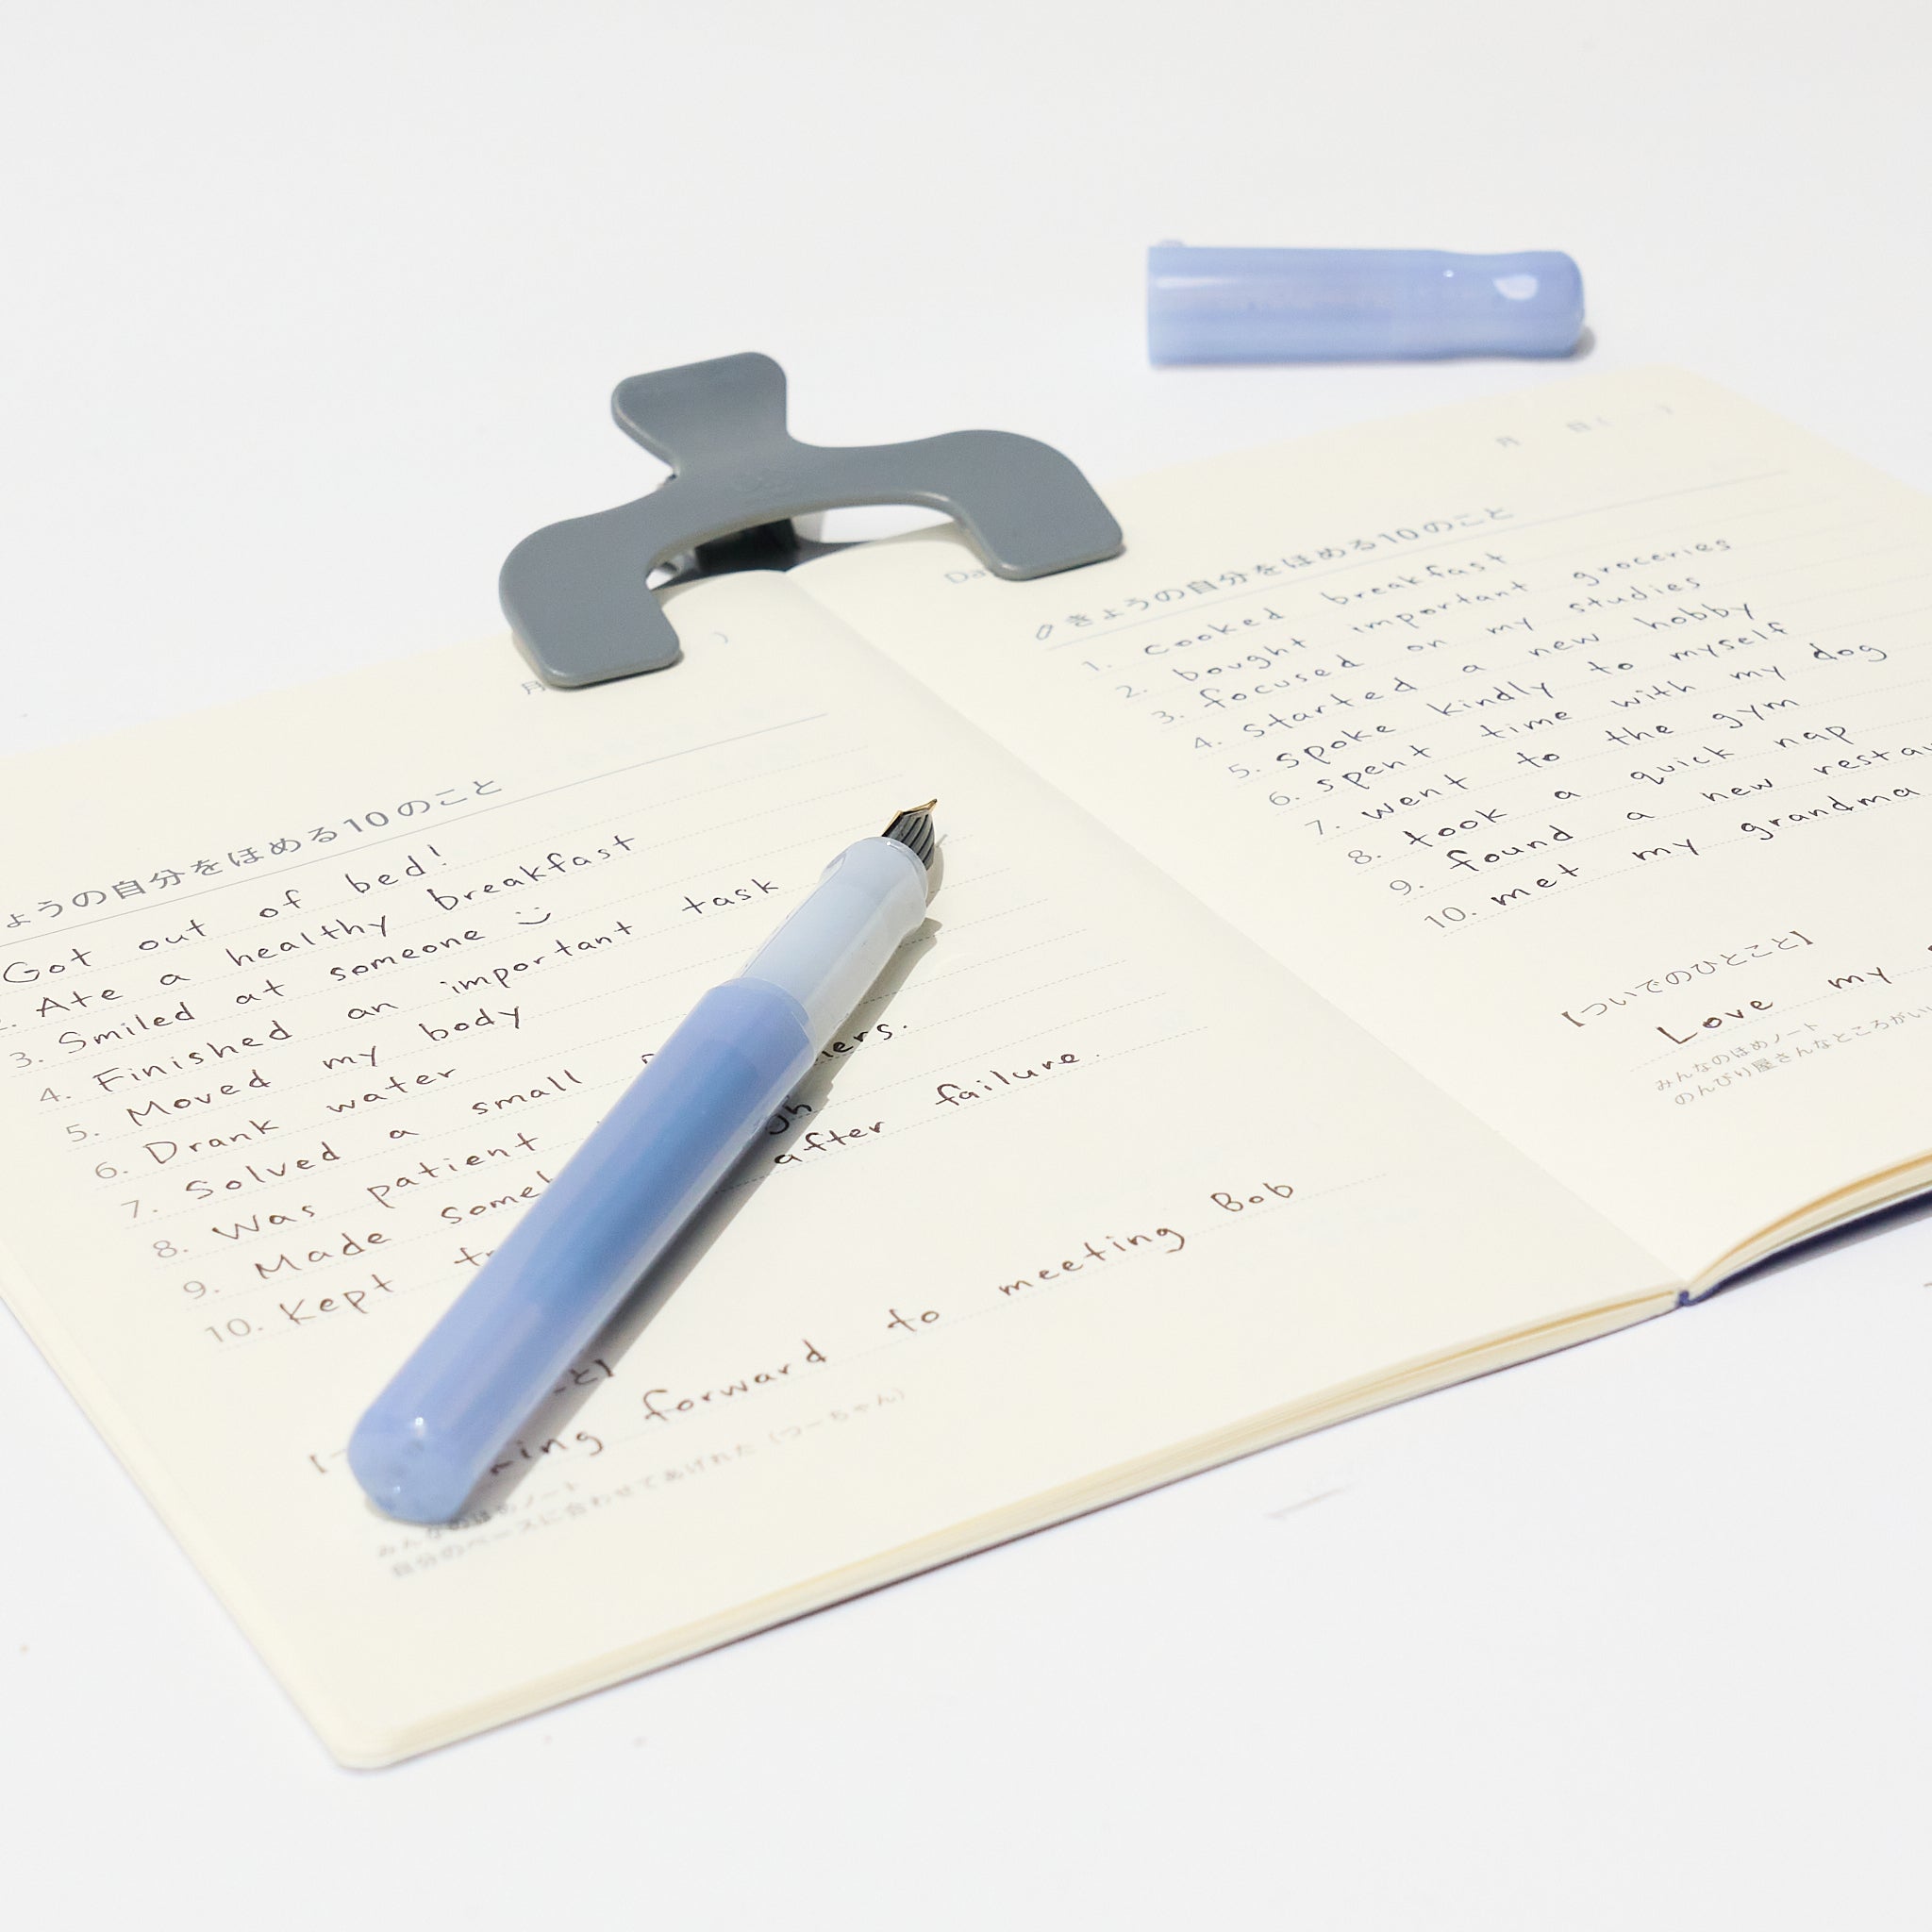 月
ょうの自分をほめる10のこと
Got out of bed!
2. Ate a healthy breakfast
3. Smiled at someone
4. Finished an important task
5. Moved my body
6. Drank water
7. Solved a small
8. Was patient
9. Made
10. Kept after failure.
forward to meeting Bob
みんなのほめノート
自分のペースに合わせてあげれた(つーちゃん)
月 日( )
きょうの自分をほめる10のこと
1. cooked breakfast
2. bought important groceries
3. focused on my studies
4. started a new hobby
5. spoke kindly to myself
6. spent time with my dog
7. went to the gym
8. took a quick nap
9. found a new
10. met my grandma
【ついでのひとこと】
Love my
みんなのほめノート
のんびり屋さんなところがいい